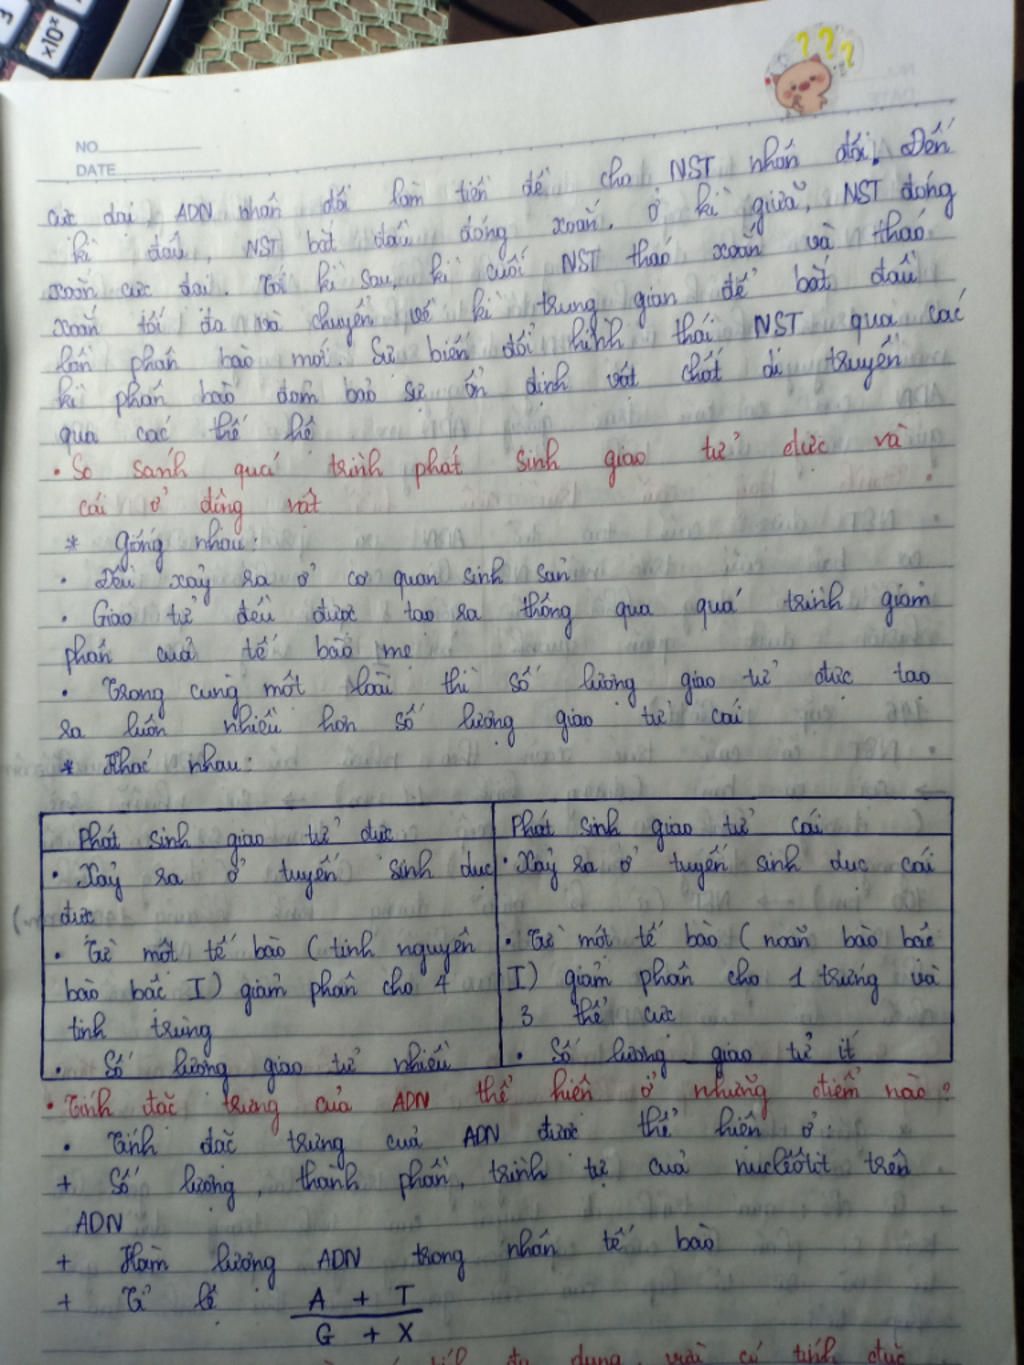 x10ˣ
???
NO
DATE
cực đại, ADN nhân đôi làm tiền đề cho NST nhân đôi. Đến
kì đầu, NST bắt đầu đóng xoắn. Ở kì giữa, NST đóng
xoắn cực đại. Tới kì sau, kì cuối NST tháo xoắn và tháo
xoắn tối đa và chuyển về kì trung gian để bắt đầu
lần phân bào mới. Sự biến đổi hình thái NST qua các
kì phân bào đảm bảo sự ổn định vật chất di truyền
qua các thế hệ
• So sánh quá trình phát sinh giao tử đực và
cái ở động vật
* Giống nhau:
• Đều xảy ra ở cơ quan sinh sản
• Giao tử đều được tạo ra thông qua quá trình giảm
phân của tế bào mẹ
• Trong cùng một loài thì số lượng giao tử đực tạo
ra luôn nhiều hơn số lượng giao tử cái
* Khác nhau:
Phát sinh giao tử đực
• Xảy ra ở tuyến sinh dục
đực
• Từ một tế bào (tinh nguyên
bào bậc I) giảm phân cho 4
tinh trùng
• Số lượng giao tử nhiều
Phát sinh giao tử cái
• Xảy ra ở tuyến sinh dục cái
• Từ một tế bào (noãn bào bậc
I) giảm phân cho 1 trứng và
3 thể cực
• Số lượng giao tử ít
• Tính đặc trưng của ADN thể hiện ở những điểm nào?
• Tính đặc trưng của ADN được thể hiện ở:
+ Số lượng, thành phần, trình tự của nuclêôtit trên
ADN
+ Hàm lượng ADN trong nhân tế bào
+ Tỉ lệ A + T
G + X